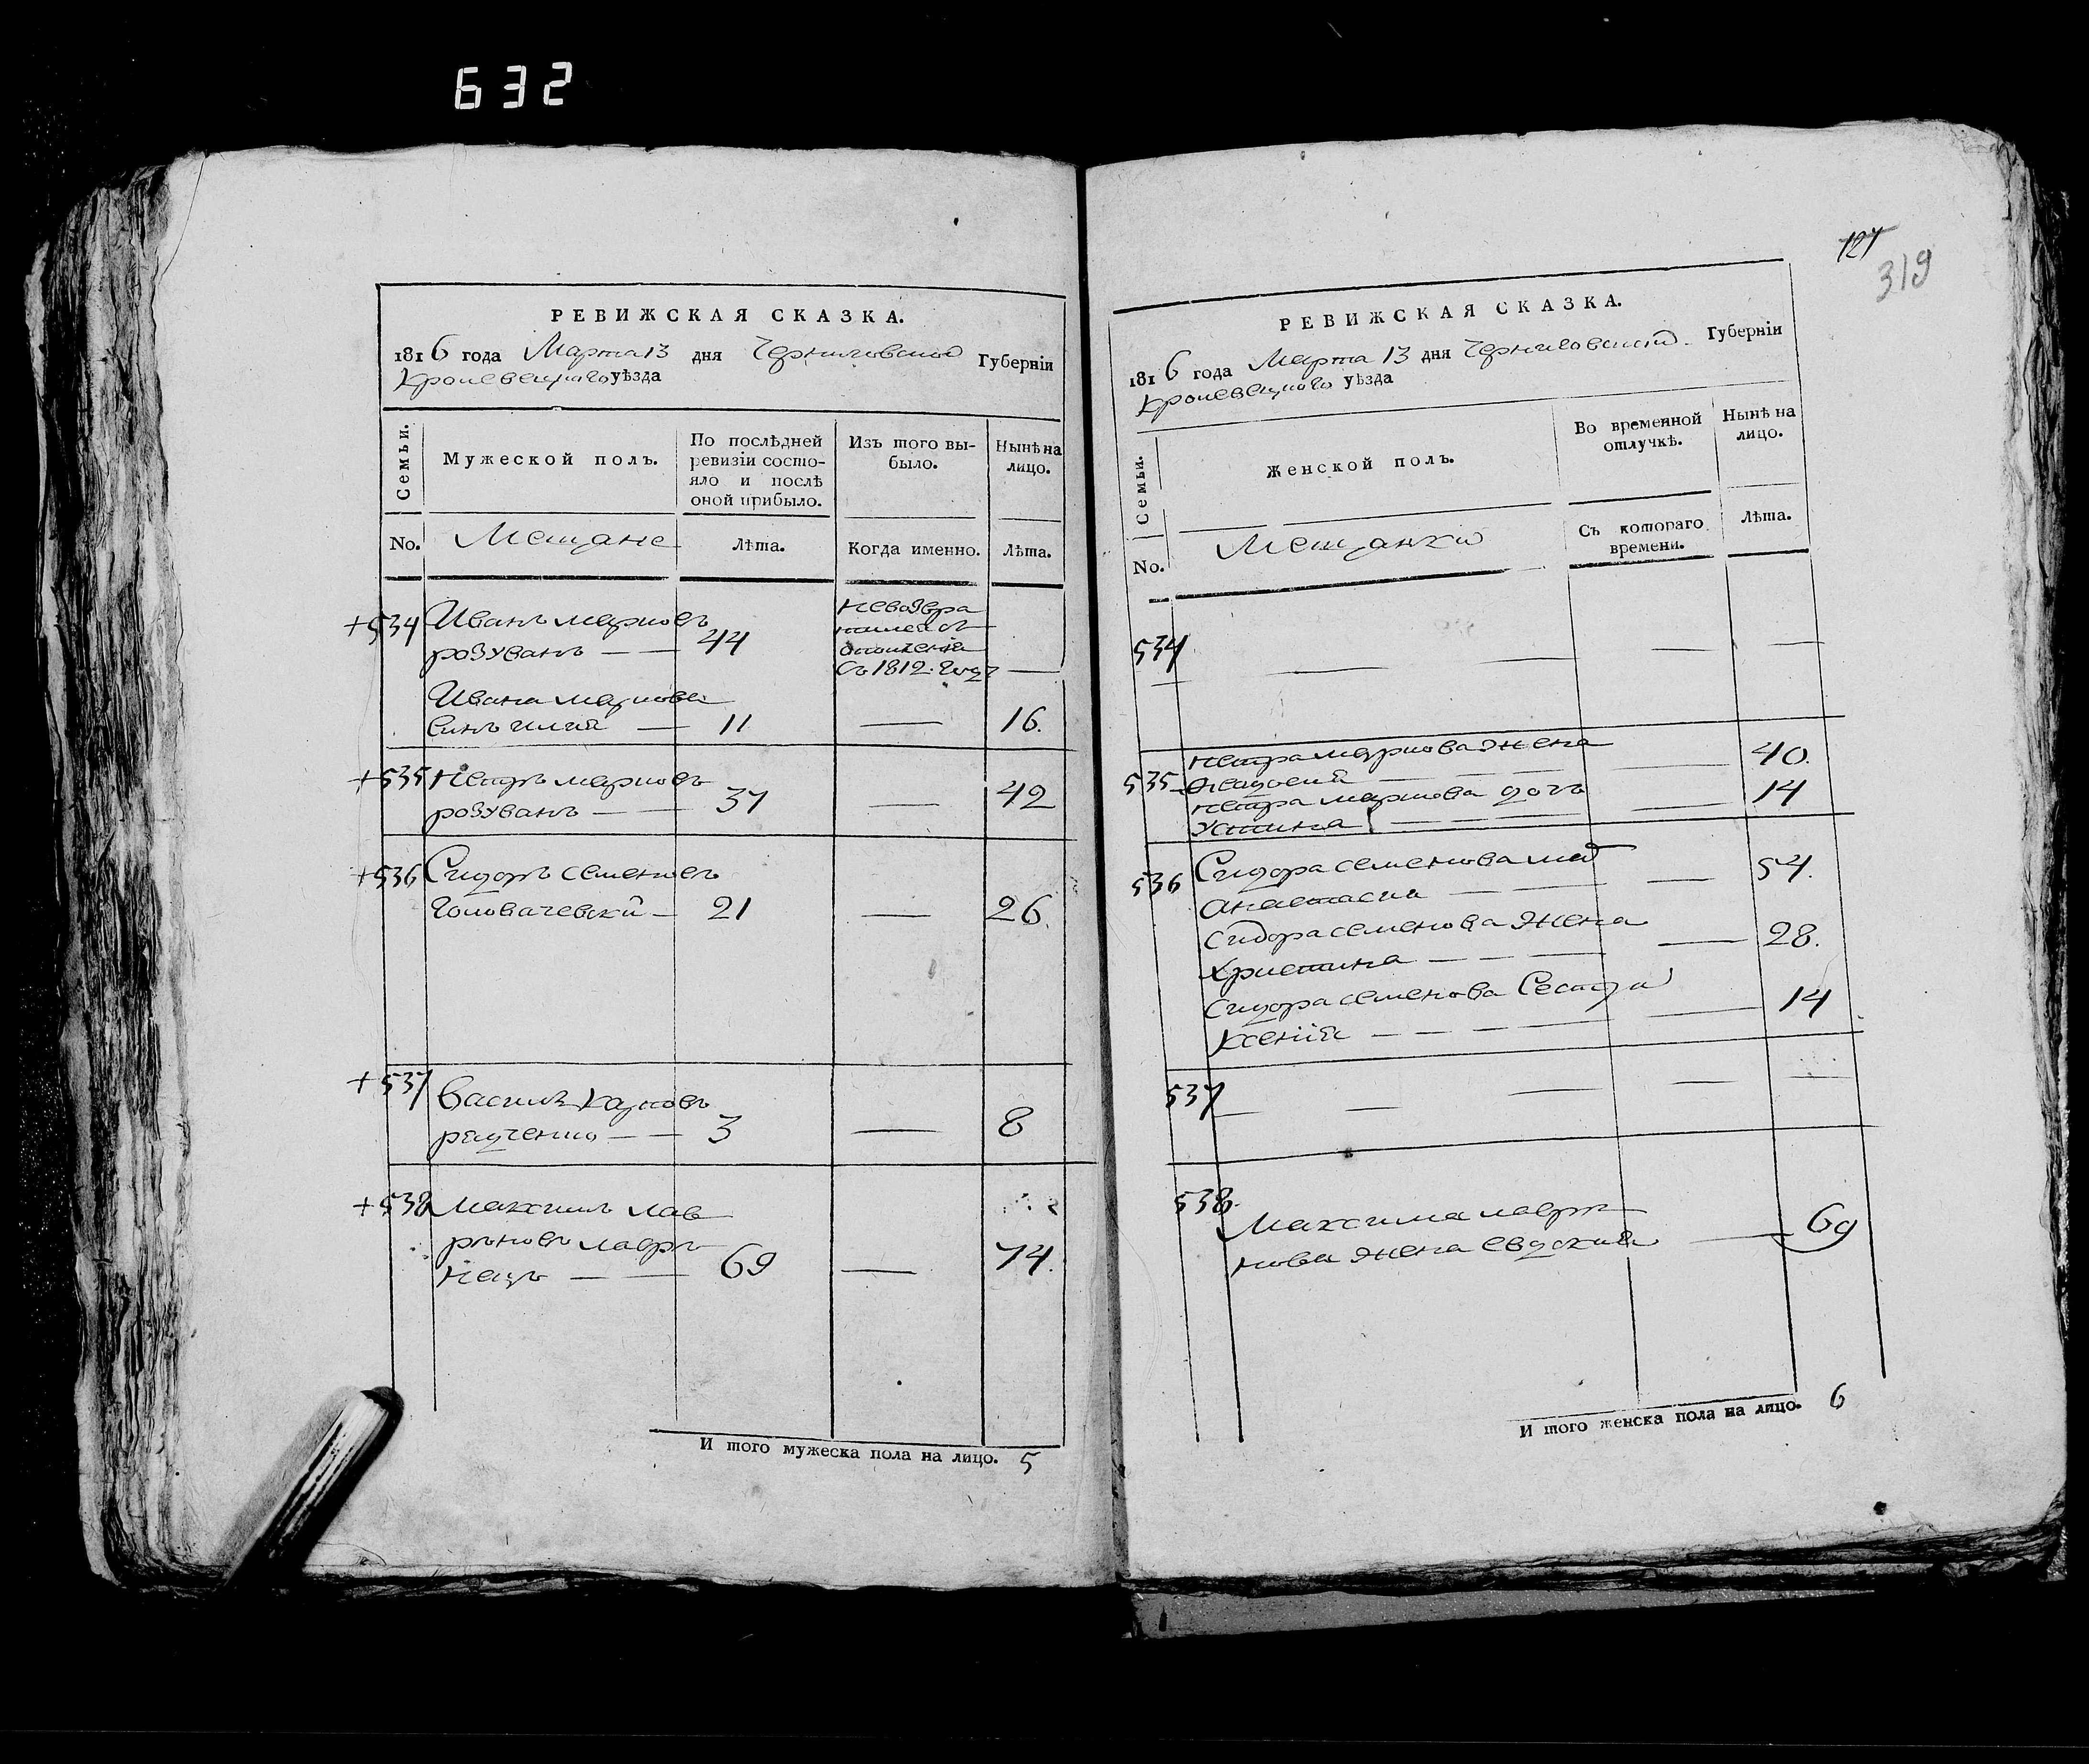 632
РЕВИЖСКАЯ СКАЗКА.
1816 года Марта 13 дня Черниговской Губерніи
Кролевецкого уѣзда
Семьи.
Мужеской полъ.
По послѣдней
ревизіи состо-
яло и послѣ
оной прибыло.
Изъ того вы-
было.
Нынѣ на
лицо.
No.
Мещане
Лѣта.
Когда именно.
Лѣта.
+534 Иванъ Марковъ
розуванъ — — 44
невозвра
с 1812. году —
Ивана Маркова
синъ — 11 — 16.
+535 Петръ Марковъ
розуванъ — 37 — 42
+536 Сидоръ Семеновъ
Головачевский — 21 — 26.
+537 Василь Карповъ
— — 3 — 8
+538 Максимъ Лав
рѣновъ лаврѣ
нецъ — — 69 — 74.
И того мужеска пола на лицо. 5
127
319
РЕВИЖСКАЯ СКАЗКА.
1816 года Марта 13 дня Черниговской Губерніи
Кролевецкого уѣзда
Семьи.
Женской полъ.
Во временной
отлучкѣ.
Нынѣ на
лицо.
No.
Мещанки
Съ котораго
времени.
Лѣта.
534 — — — —
535 Петра Маркова Жена
— — — — 40.
Петра Маркова дочь
Устина — — — — 14
536 Сидора Семенова
Анастасия — — — 54.
Сидора Семенова Жена
Христина — — — — 28.
Сидора Семенова Сестра
Ксения — — — — 14
537 — — — — —
538. Максима лаврѣ
нова Жена Евдокия — 69
И того женска пола на лицо. 6